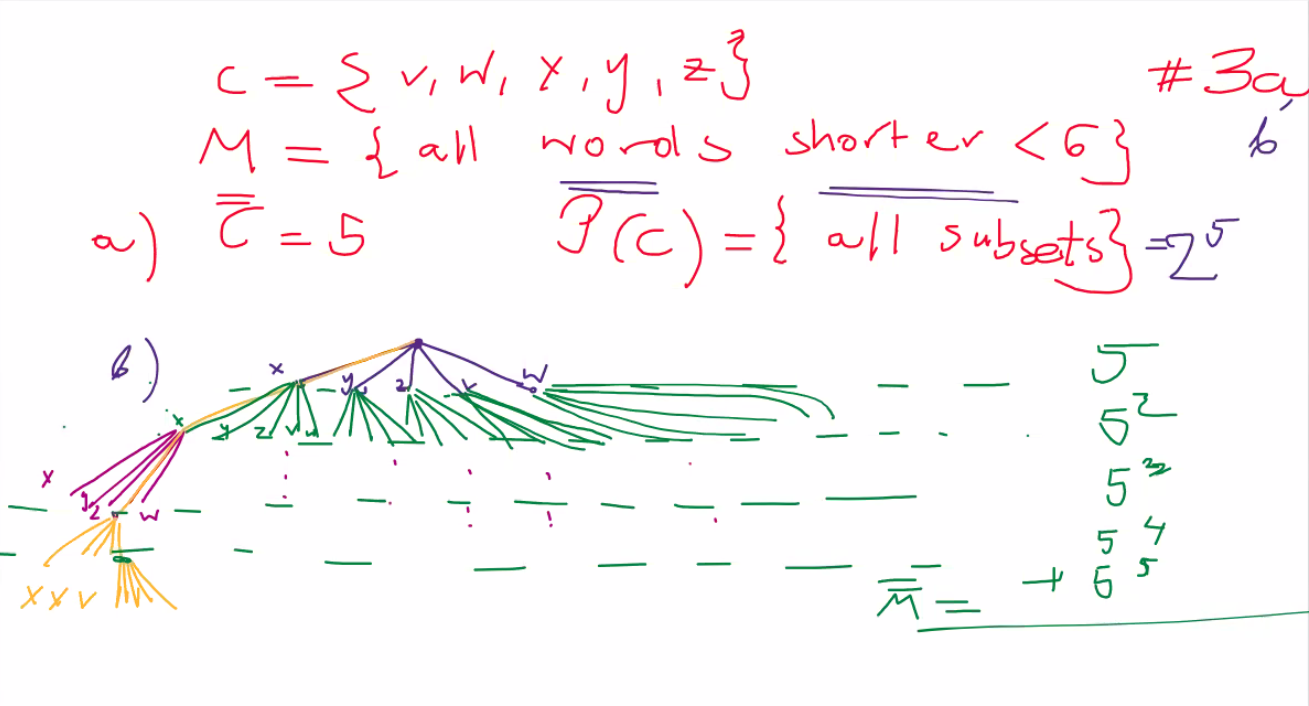 C = {v, w, x, y, z}
#3a,
M = {all words shorter < 6}
b
a) C̿ = 5
P(C) = {all subsets} = 2⁵
b)
x y z v w
x y z v w
x y z w
x x v
5
5²
5³
5⁴
M̿ = + 5⁵